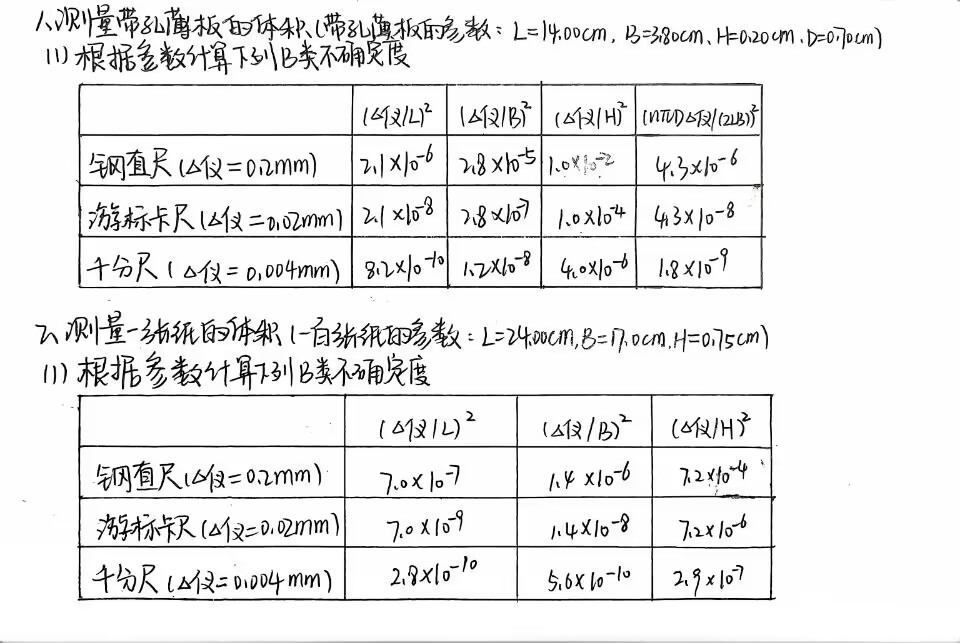 一、测量带孔薄板的体积(带孔薄板的参数: L=14.00cm、B=3.80cm、H=0.20cm、D=0.70cm)
(1) 根据参数计算下列B类不确定度
(△仪/L)² (△仪/B)² (△仪/H)² (nπD△仪/(2LB))²
钢直尺(△仪=0.2mm) 2.1×10⁻⁶ 2.8×10⁻⁵ 1.0×10⁻² 4.3×10⁻⁶
游标卡尺(△仪=0.02mm) 2.1×10⁻⁸ 2.8×10⁻⁷ 1.0×10⁻⁴ 4.3×10⁻⁸
千分尺(△仪=0.004mm) 8.2×10⁻¹⁰ 1.2×10⁻⁸ 4.0×10⁻⁶ 1.8×10⁻⁹
二、测量一张纸的体积(一百张纸的参数: L=24.00cm, B=17.0cm, H=0.75cm)
(1) 根据参数计算下列B类不确定度
(△仪/L)² (△仪/B)² (△仪/H)²
钢直尺(△仪=0.2mm) 7.0×10⁻⁷ 1.4×10⁻⁶ 7.2×10⁻⁴
游标卡尺(△仪=0.02mm) 7.0×10⁻⁹ 1.4×10⁻⁸ 7.2×10⁻⁶
千分尺(△仪=0.004mm) 2.8×10⁻¹⁰ 5.6×10⁻¹⁰ 2.9×10⁻⁷